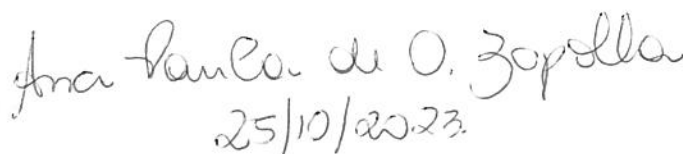 Ana Paula de O. Zapolla
25/10/2023.